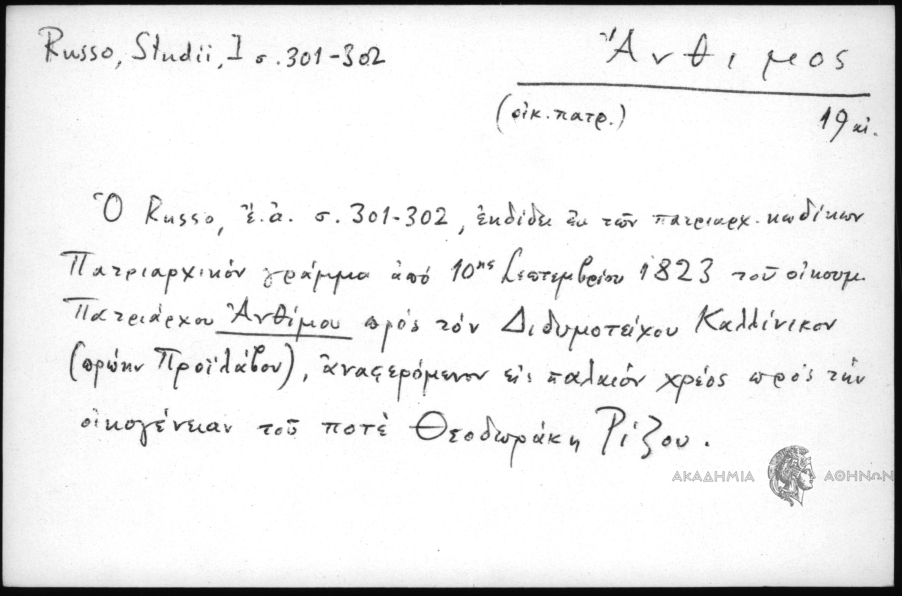 Russo, Studii, I σ. 301-302
Ἄνθιμος
(οἰκ. πατρ.)
19 αἰ.
Ὁ Russo, ἔ.ἀ. σ. 301-302, ἐκδίδει ἐκ τῶν πατριαρχ. κωδίκων
Πατριαρχικόν γράμμα ἀπό 10ης Σεπτεμβρίου 1823 τοῦ οἰκουμ.
Πατριάρχου Ἀνθίμου πρός τόν Διδυμοτείχου Καλλίνικον
(πρώην Προϊλάβου), ἀναφερόμενον εἰς παλαιόν χρέος πρός τήν
οἰκογένειαν τοῦ ποτέ Θεοδωράκη Ρίζου.
ΑΚΑΔΗΜΙΑ ΑΘΗΝΩΝ